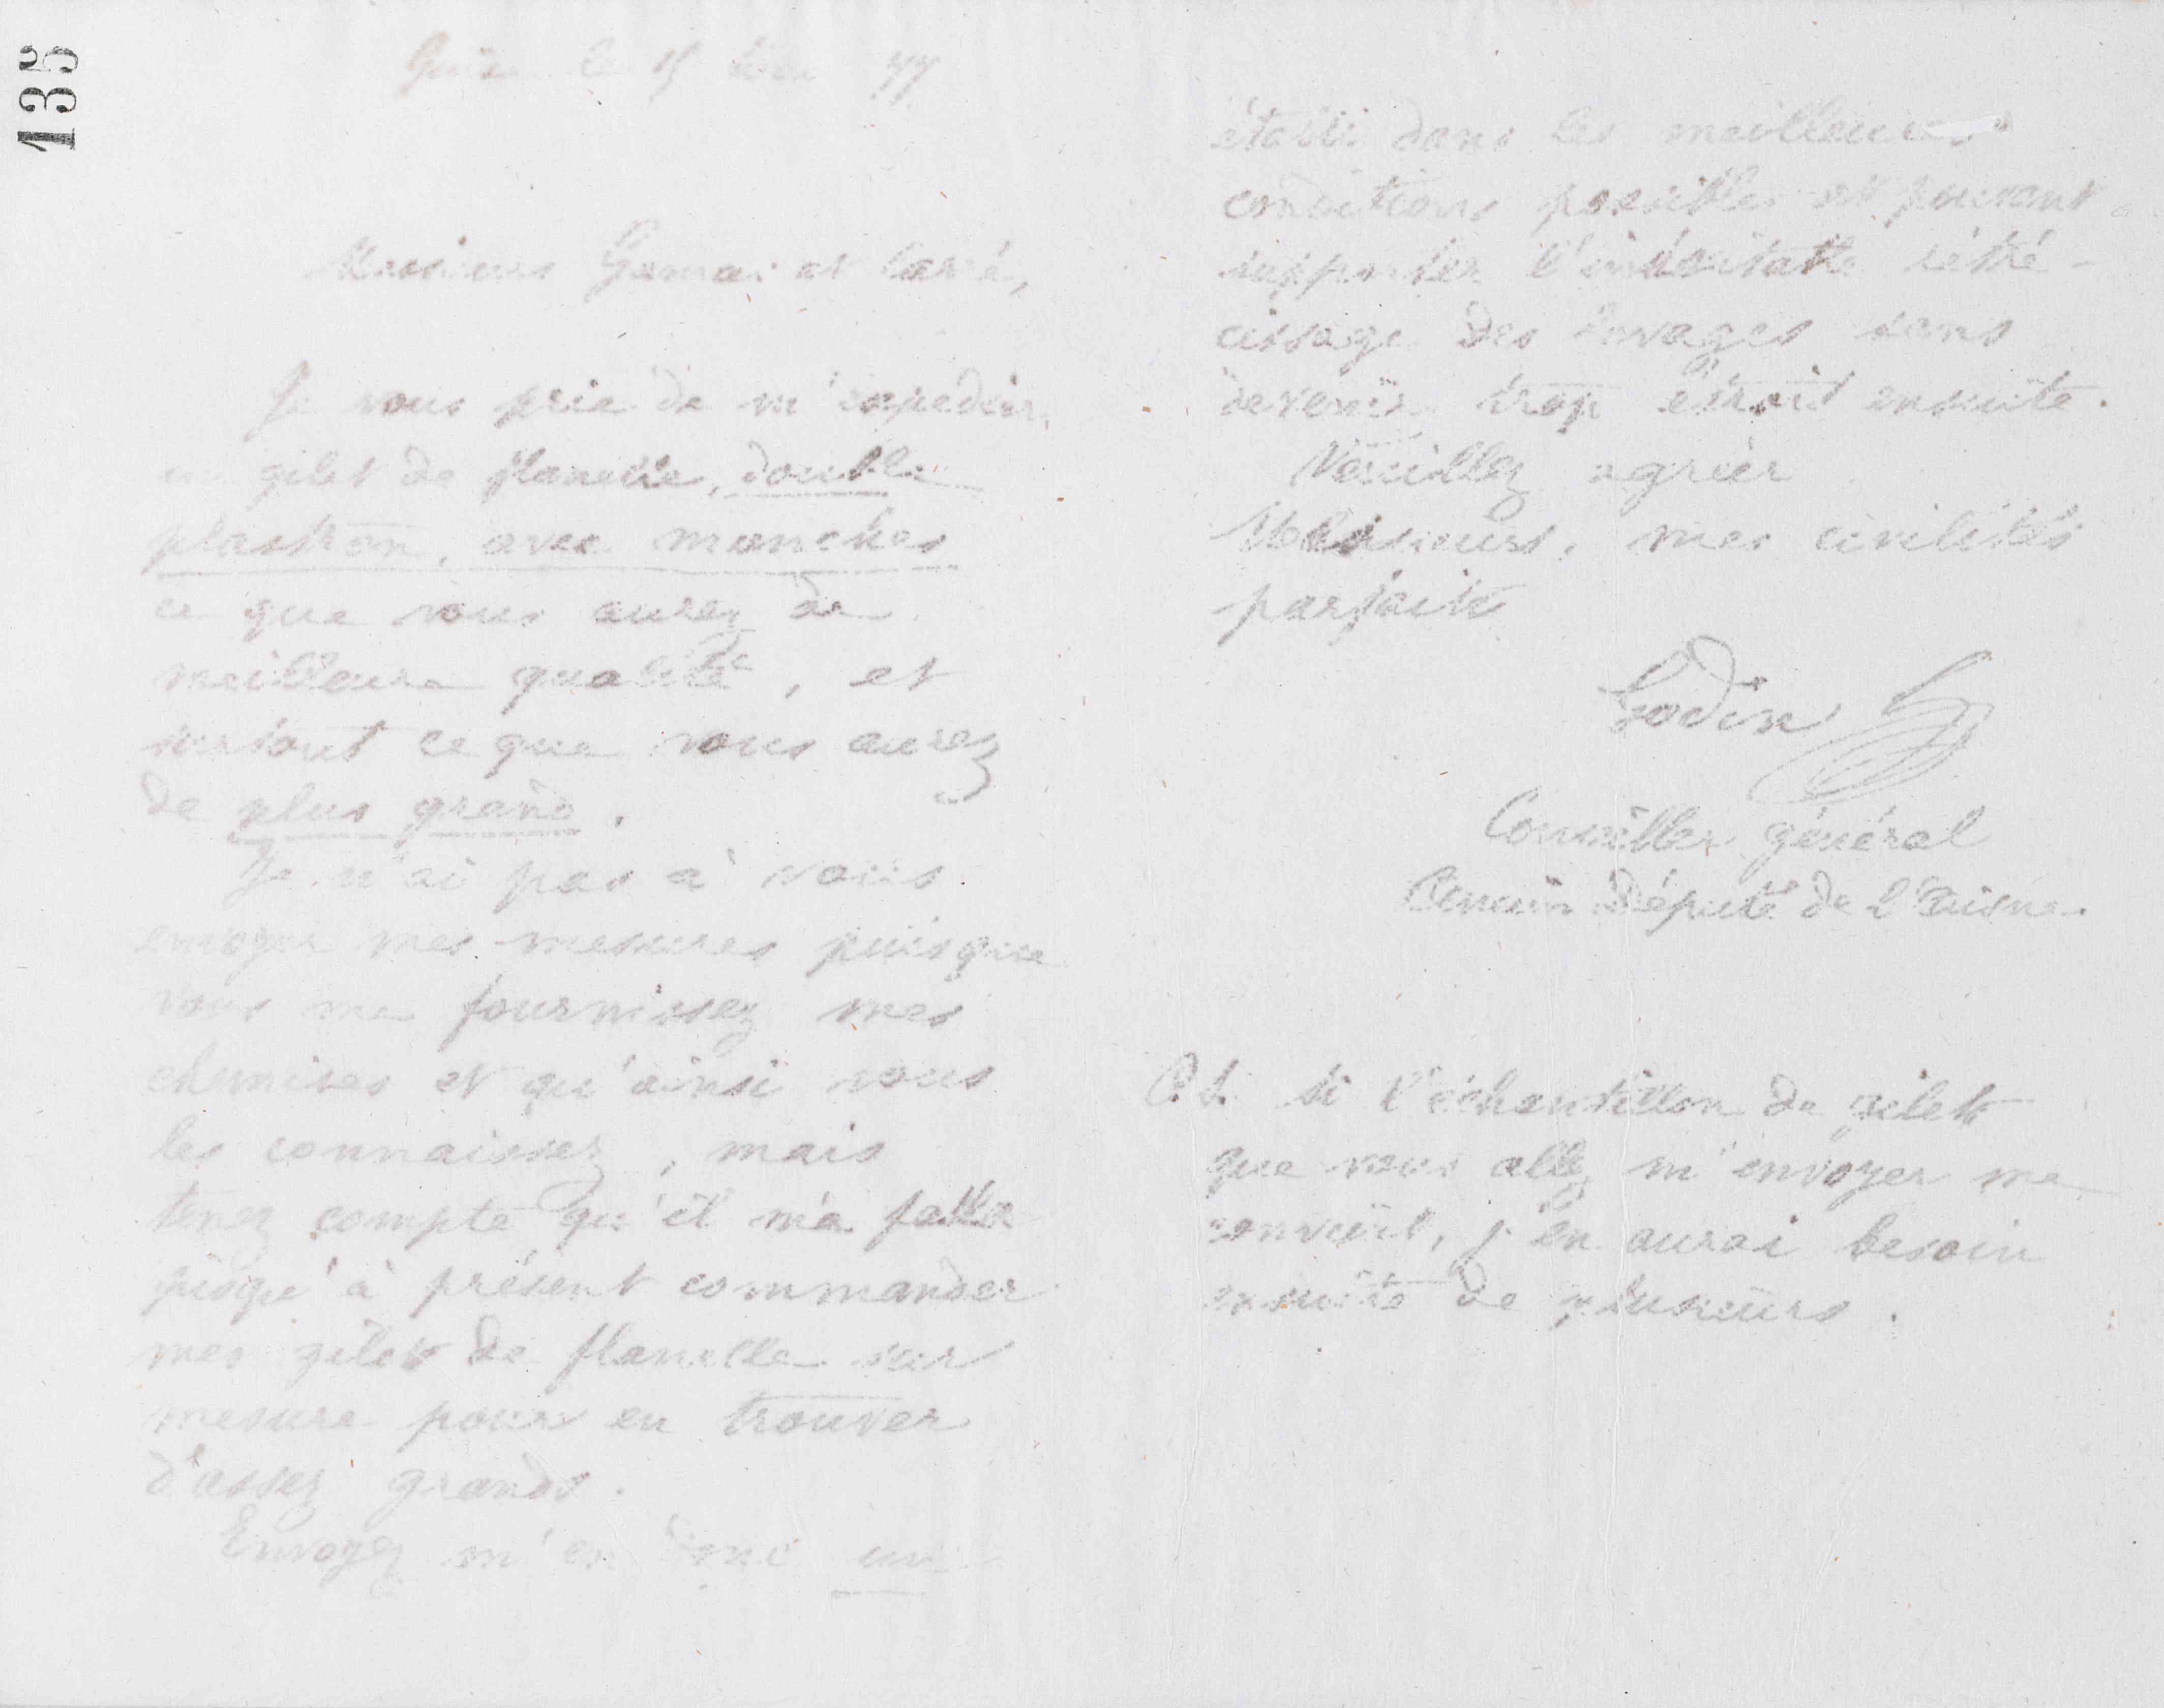 135
Guise le 15 77
Messieurs Gamas et Carré,
Je vous prie de m'expedier
un gilet de flanelle, double
plastron, avec manches
ce que vous aurez de
meilleure qualité, et
surtout ce que vous aurez
de plus grand.
Je n'ai pas à vous
envoyer mes mesures puisque
vous me fournissez mes
chemises et qu'ainsi vous
les connaissez, mais
tenez compte qu'il m'a fallu
jusqu'à présent commander
mes gilets de flanelle sur
mesure pour en trouver
d'assez grands.
Envoyez m'en donc un
établi dans les meilleures
conditions possibles et pouvant
supporter l'inévitable rétré-
cissage des lavages sans
devenir trop étroit ensuite.
Veuillez agréer
Messieurs, mes civilités
parfaites
Godin
Conseiller général
Ancien député de l'Aisne.
P.S. Si l'échantillon de gilets
que vous allez m'envoyer me
convient, j'en aurai besoin
ensuite de plusieurs.